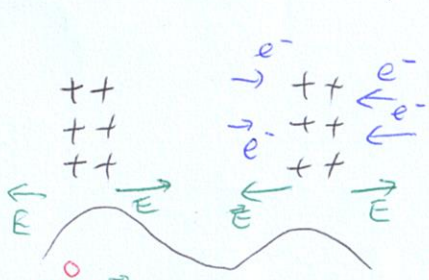 e⁻
++ ++ e⁻
e⁻
++ ++
e⁻
++ ++
E E E E